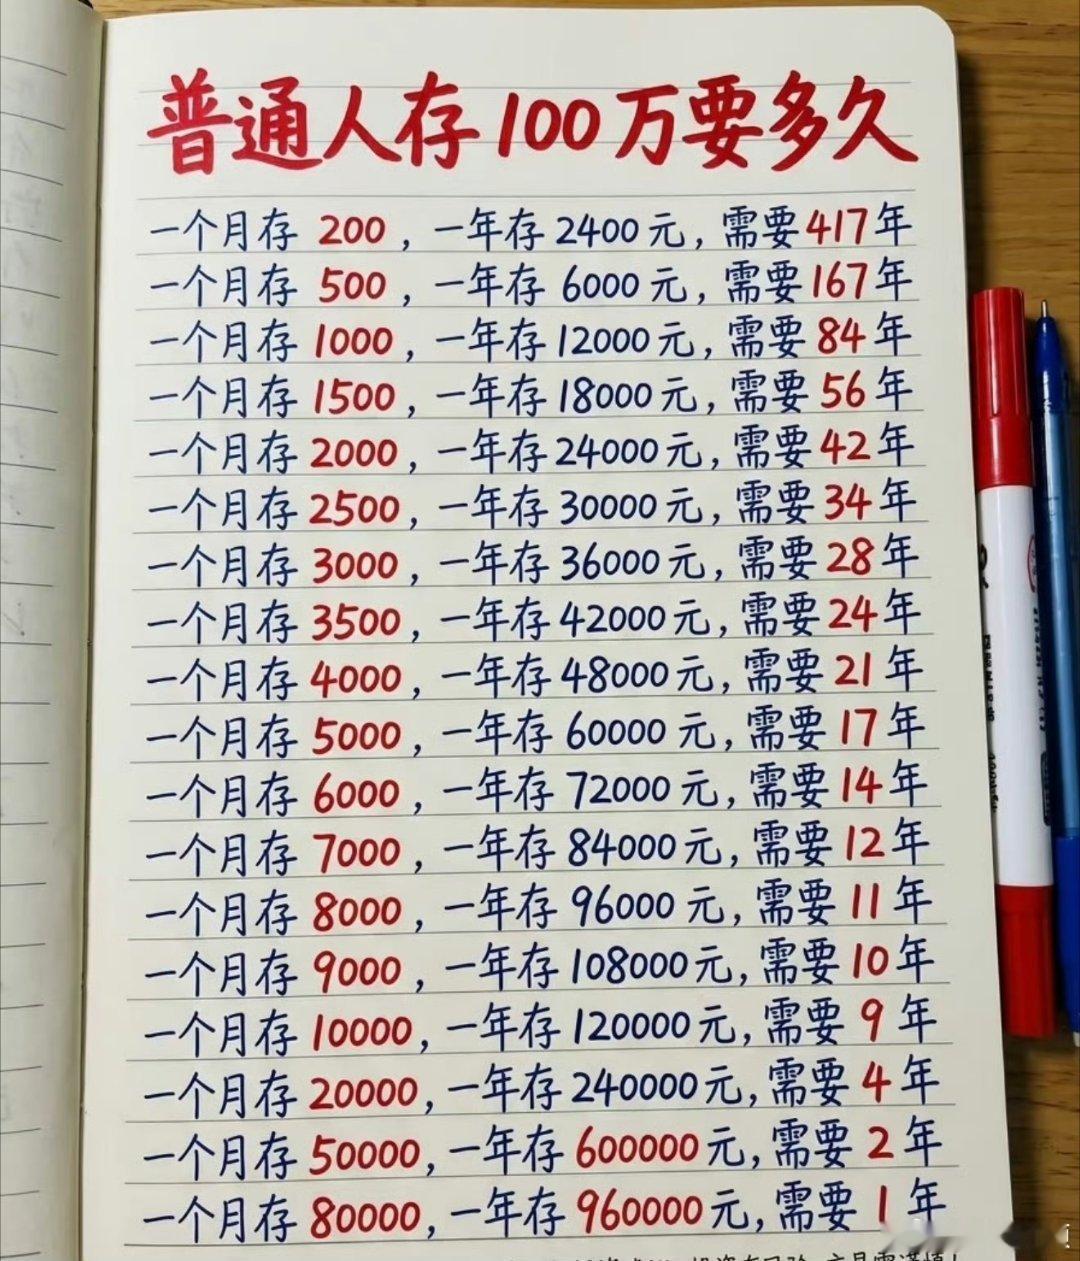 普通人存100万要多久
一个月存 200 ，一年存2400元，需要417年
一个月存 500 ，一年存 6000元，需要167年
一个月存 1000 ，一年存12000元，需要84年
一个月存 1500 ，一年存18000元，需要56年
一个月存 2000 ，一年存24000元，需要42年
一个月存 2500 ，一年存30000元，需要34年
一个月存 3000 ，一年存36000元，需要28年
一个月存 3500 ，一年存42000元，需要24年
一个月存 4000 ，一年存48000元，需要21年
一个月存 5000 ，一年存60000元，需要17年
一个月存 6000 ，一年存72000元，需要14年
一个月存 7000 ，一年存84000元，需要12年
一个月存 8000 ，一年存96000元，需要11年
一个月存 9000 ，一年存108000元，需要10年
一个月存 10000，一年存120000元，需要9年
一个月存 20000，一年存240000元，需要4年
一个月存 50000，一年存600000元，需要2年
一个月存 80000，一年存960000元，需要1年